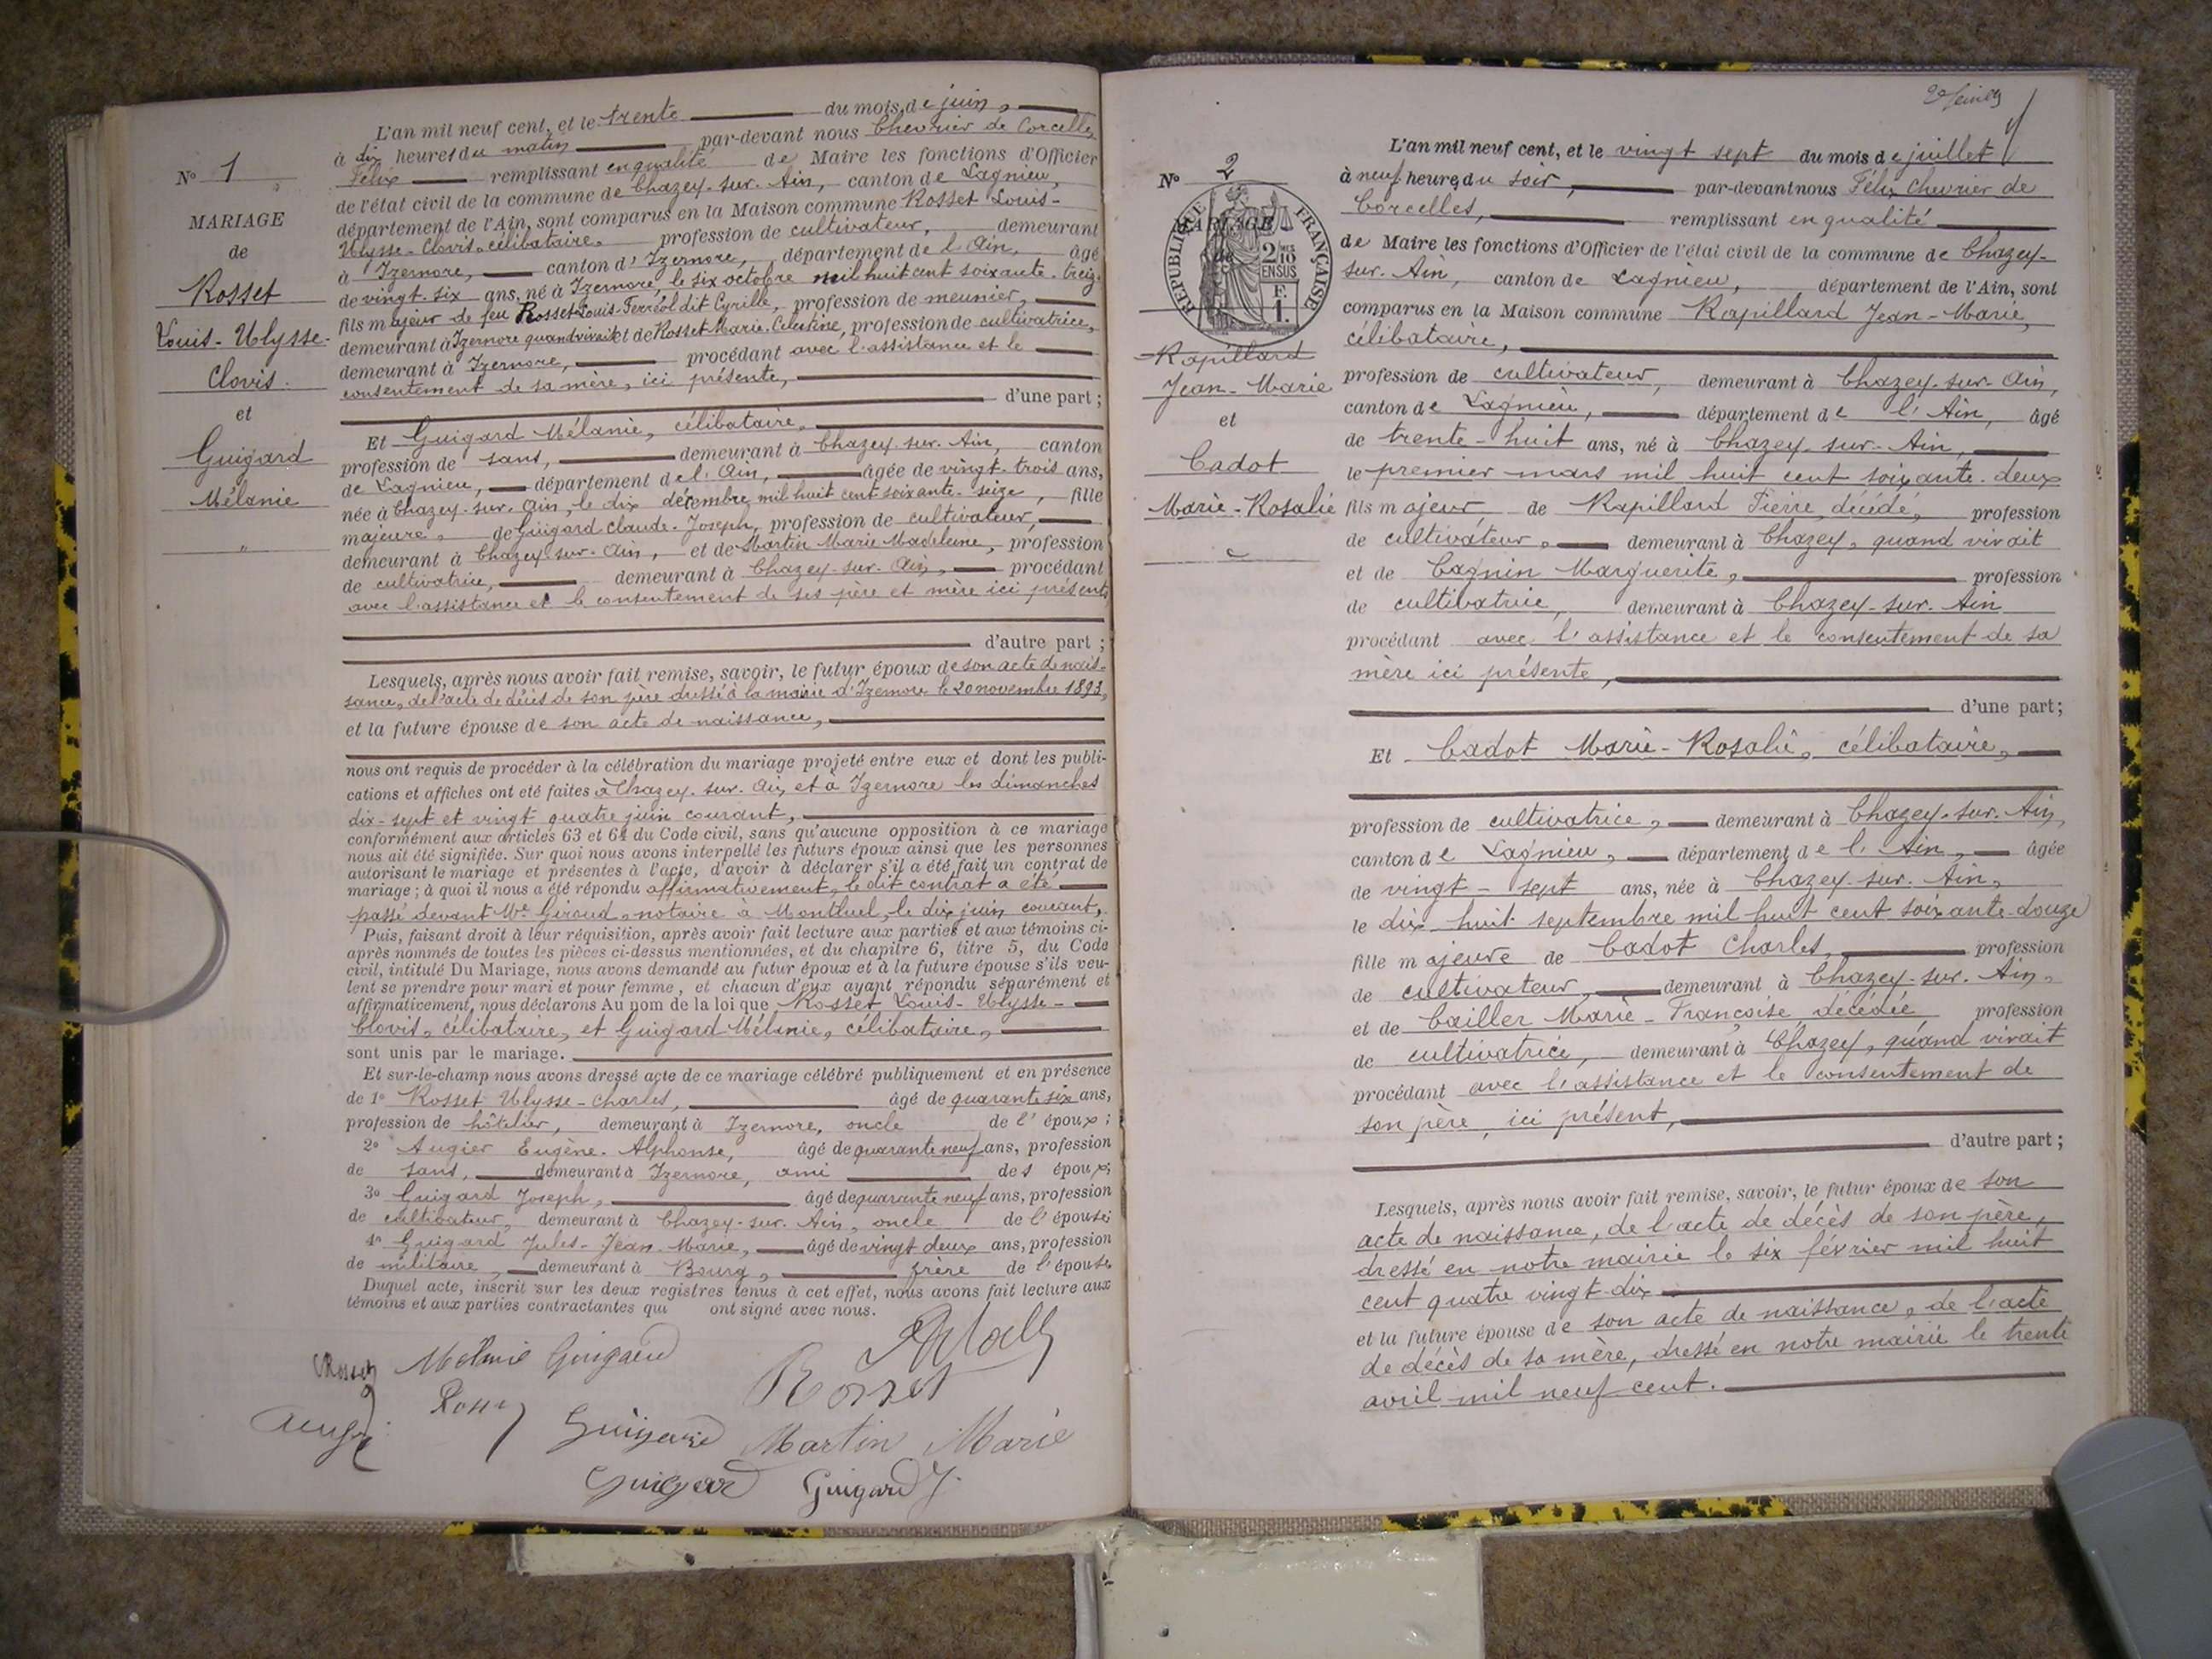 N° 1
MARIAGE
de
Rosset
Louis-Ulysse-
Clovis.
et
Guigard
Mélanie
"
L'an mil neuf cent, et le trente du mois de juin,
à dix heures du matin par-devant nous Chevrier de Corcelles
Félix remplissant en qualité de Maire les fonctions d'Officier
de l'état civil de la commune de Chazey-sur-Ain, canton de Lagnieu,
département de l'Ain, sont comparus en la Maison commune Rosset Louis-
Ulysse-Clovis, célibataire, profession de cultivateur, demeurant
à Izernore, canton d'Izernore, département de l'Ain, âgé
de vingt-six ans, né à Izernore, le six octobre mil huit cent soixante-treize
fils majeur de feu Rosset Louis-Ferréol dit Cyrille, profession de meunier,
demeurant à Izernore quand vivait et de Rosset Marie-Célestine, profession de cultivatrice,
demeurant à Izernore, procédant avec l'assistance et le
consentement de sa mère, ici présente,
d'une part;
Et Guigard Mélanie, célibataire,
profession de sans, demeurant à Chazey-sur-Ain, canton
de Lagnieu, département de l'Ain, âgée de vingt-trois ans,
née à Chazey-sur-Ain, le dix décembre mil huit cent soixante-seize, fille
majeure, de Guigard Claude-Joseph, profession de cultivateur,
demeurant à Chazey-sur-Ain, et de Martin Marie Madeleine, profession
de cultivatrice, demeurant à Chazey-sur-Ain, procédant
avec l'assistance et le consentement de ses père et mère ici présents
d'autre part;
Lesquels, après nous avoir fait remise, savoir, le futur époux de son acte de nais-
sance, de l'acte de décès de son père dressé à la mairie d'Izernore le 20 novembre 1893,
et la future épouse de son acte de naissance,
nous ont requis de procéder à la célébration du mariage projeté entre eux et dont les publi-
cations et affiches ont été faites à Chazey-sur-Ain, et à Izernore les dimanches
dix-sept et vingt quatre juin courant,
conformément aux articles 63 et 64 du Code civil, sans qu'aucune opposition à ce mariage
nous ait été signifiée. Sur quoi nous avons interpellé les futurs époux ainsi que les personnes
autorisant le mariage et présentes à l'acte, d'avoir à déclarer s'il a été fait un contrat de
mariage; à quoi il nous a été répondu affirmativement, le dit contrat a été
passé devant Me Giroud, notaire à Montluel, le dix juin courant,
Puis, faisant droit à leur réquisition, après avoir fait lecture aux parties et aux témoins ci-
après nommés de toutes les pièces ci-dessus mentionnées, et du chapitre 6, titre 5, du Code
civil, intitulé Du Mariage, nous avons demandé au futur époux et à la future épouse s'ils veu-
lent se prendre pour mari et pour femme, et chacun d'eux ayant répondu séparément et
affirmativement, nous déclarons Au nom de la loi que Rosset Louis-Ulysse-
Clovis, célibataire, et Guigard Mélanie, célibataire,
sont unis par le mariage.
Et sur-le-champ nous avons dressé acte de ce mariage célébré publiquement et en présence
de 1° Rosset Ulysse-Charles, âgé de quarante six ans,
profession de hôtelier, demeurant à Izernore, oncle de l'époux;
2° Augier Eugène-Alphonse, âgé de quarante neuf ans, profession
de sans, demeurant à Izernore, ami des époux;
3° Guigard Joseph, âgé de quarante neuf ans, profession
de cultivateur, demeurant à Chazey-sur-Ain, oncle de l'épouse;
4° Guigard Jules-Jean-Marie, âgé de vingt deux ans, profession
de militaire, demeurant à Bourg, frère de l'épouse
Duquel acte, inscrit sur les deux registres tenus à cet effet, nous avons fait lecture aux
témoins et aux parties contractantes qui ont signé avec nous.
Mélanie Guigard
Rosset
Guigard Martin Marie
Guigard Guigard J.
N° 2
RÉPUBLIQUE FRANÇAISE
MARIAGE
de
2/10
EN SUS
F.
1.
Rapillard
Jean-Marie
et
Cadot
Marie-Rosalie
L'an mil neuf cent, et le vingt sept du mois de juillet
à neuf heures du soir, par-devant nous Félix Chevrier de
Corcelles, remplissant en qualité
de Maire les fonctions d'Officier de l'état civil de la commune de Chazey-
sur-Ain, canton de Lagnieu, département de l'Ain, sont
comparus en la Maison commune Rapillard Jean-Marie,
célibataire,
profession de cultivateur, demeurant à Chazey-sur-Ain,
canton de Lagnieu, département de l'Ain, âgé
de trente-huit ans, né à Chazey-sur-Ain,
le premier mars mil huit cent soixante-deux
fils majeur de Rapillard Pierre, décédé, profession
de cultivateur, demeurant à Chazey, quand vivait
et de Cagnin Marguerite, profession
de cultivatrice, demeurant à Chazey-sur-Ain
procédant avec l'assistance et le consentement de sa
mère ici présente,
d'une part;
Et Cadot Marie-Rosalie, célibataire,
profession de cultivatrice, demeurant à Chazey-sur-Ain,
canton de Lagnieu, département de l'Ain, âgée
de vingt-sept ans, née à Chazey-sur-Ain,
le dix-huit septembre mil huit cent soixante-douze
fille majeure de Cadot Charles, profession
de cultivateur, demeurant à Chazey-sur-Ain,
et de Cailler Marie-Françoise, décédée profession
de cultivatrice, demeurant à Chazey, quand vivait
procédant avec l'assistance et le consentement de
son père, ici présent,
d'autre part;
Lesquels, après nous avoir fait remise, savoir, le futur époux de son
acte de naissance, de l'acte de décès de son père,
dressé en notre mairie le six février mil huit
cent quatre vingt-dix
et la future épouse de son acte de naissance, de l'acte
de décès de sa mère, dressé en notre mairie le trente
avril mil neuf cent.